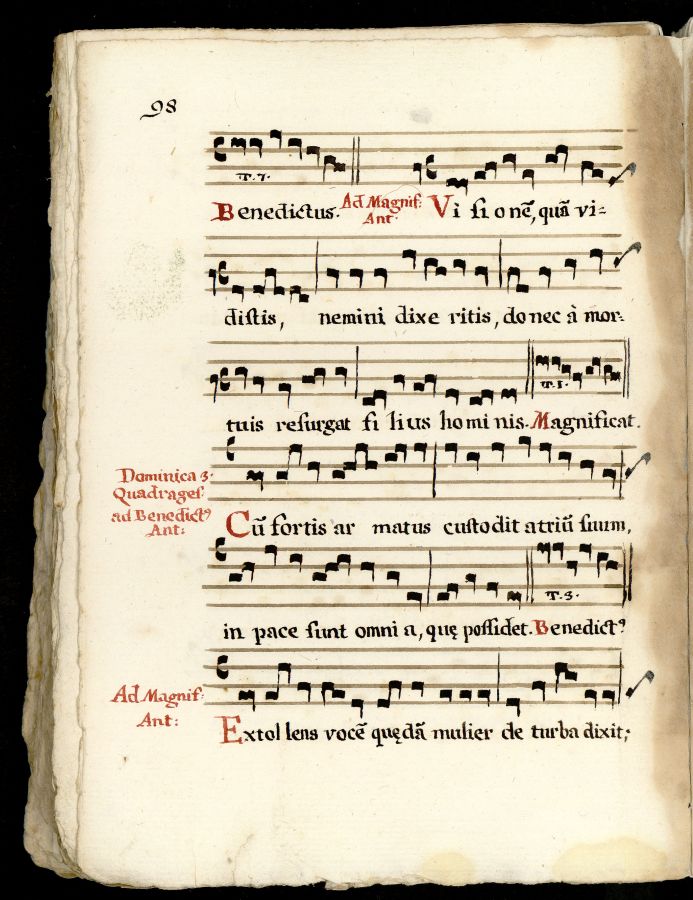 98
T. 7.
Benedictus. Ad Magnif: Ant: Vi si o nē, quā vi-
distis, nemini dixe ritis, donec à mor-
T. 1.
tuis resurgat fi lius homi nis. Magnificat.
Dominica 3.
Quadragef:
ad Benedict⁹
Ant:
Cū fortis ar matus custodit atriū suum,
T. 3.
in pace sunt omni a, quę possidet. Benedict⁹
Ad Magnif:
Ant:
Extol lens vocē quędā mulier de turba dixit;